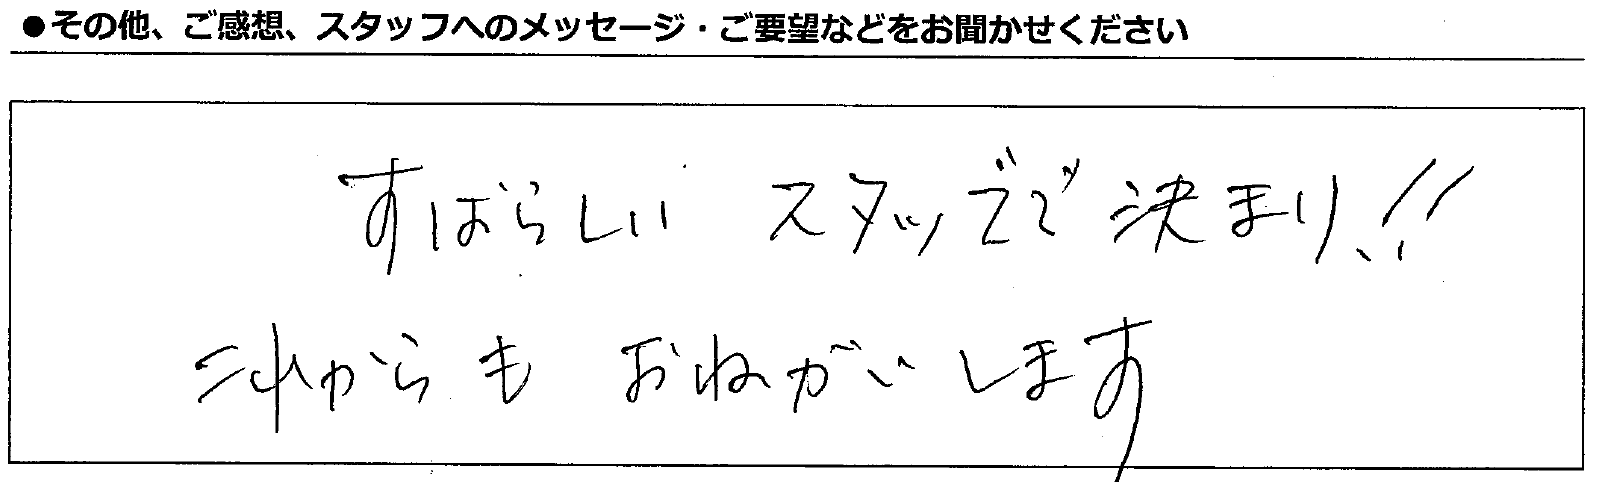 ●その他、ご感想、スタッフへのメッセージ・ご要望などをお聞かせください
すばらしい スタッフで決まり!!
これからも おねがいします